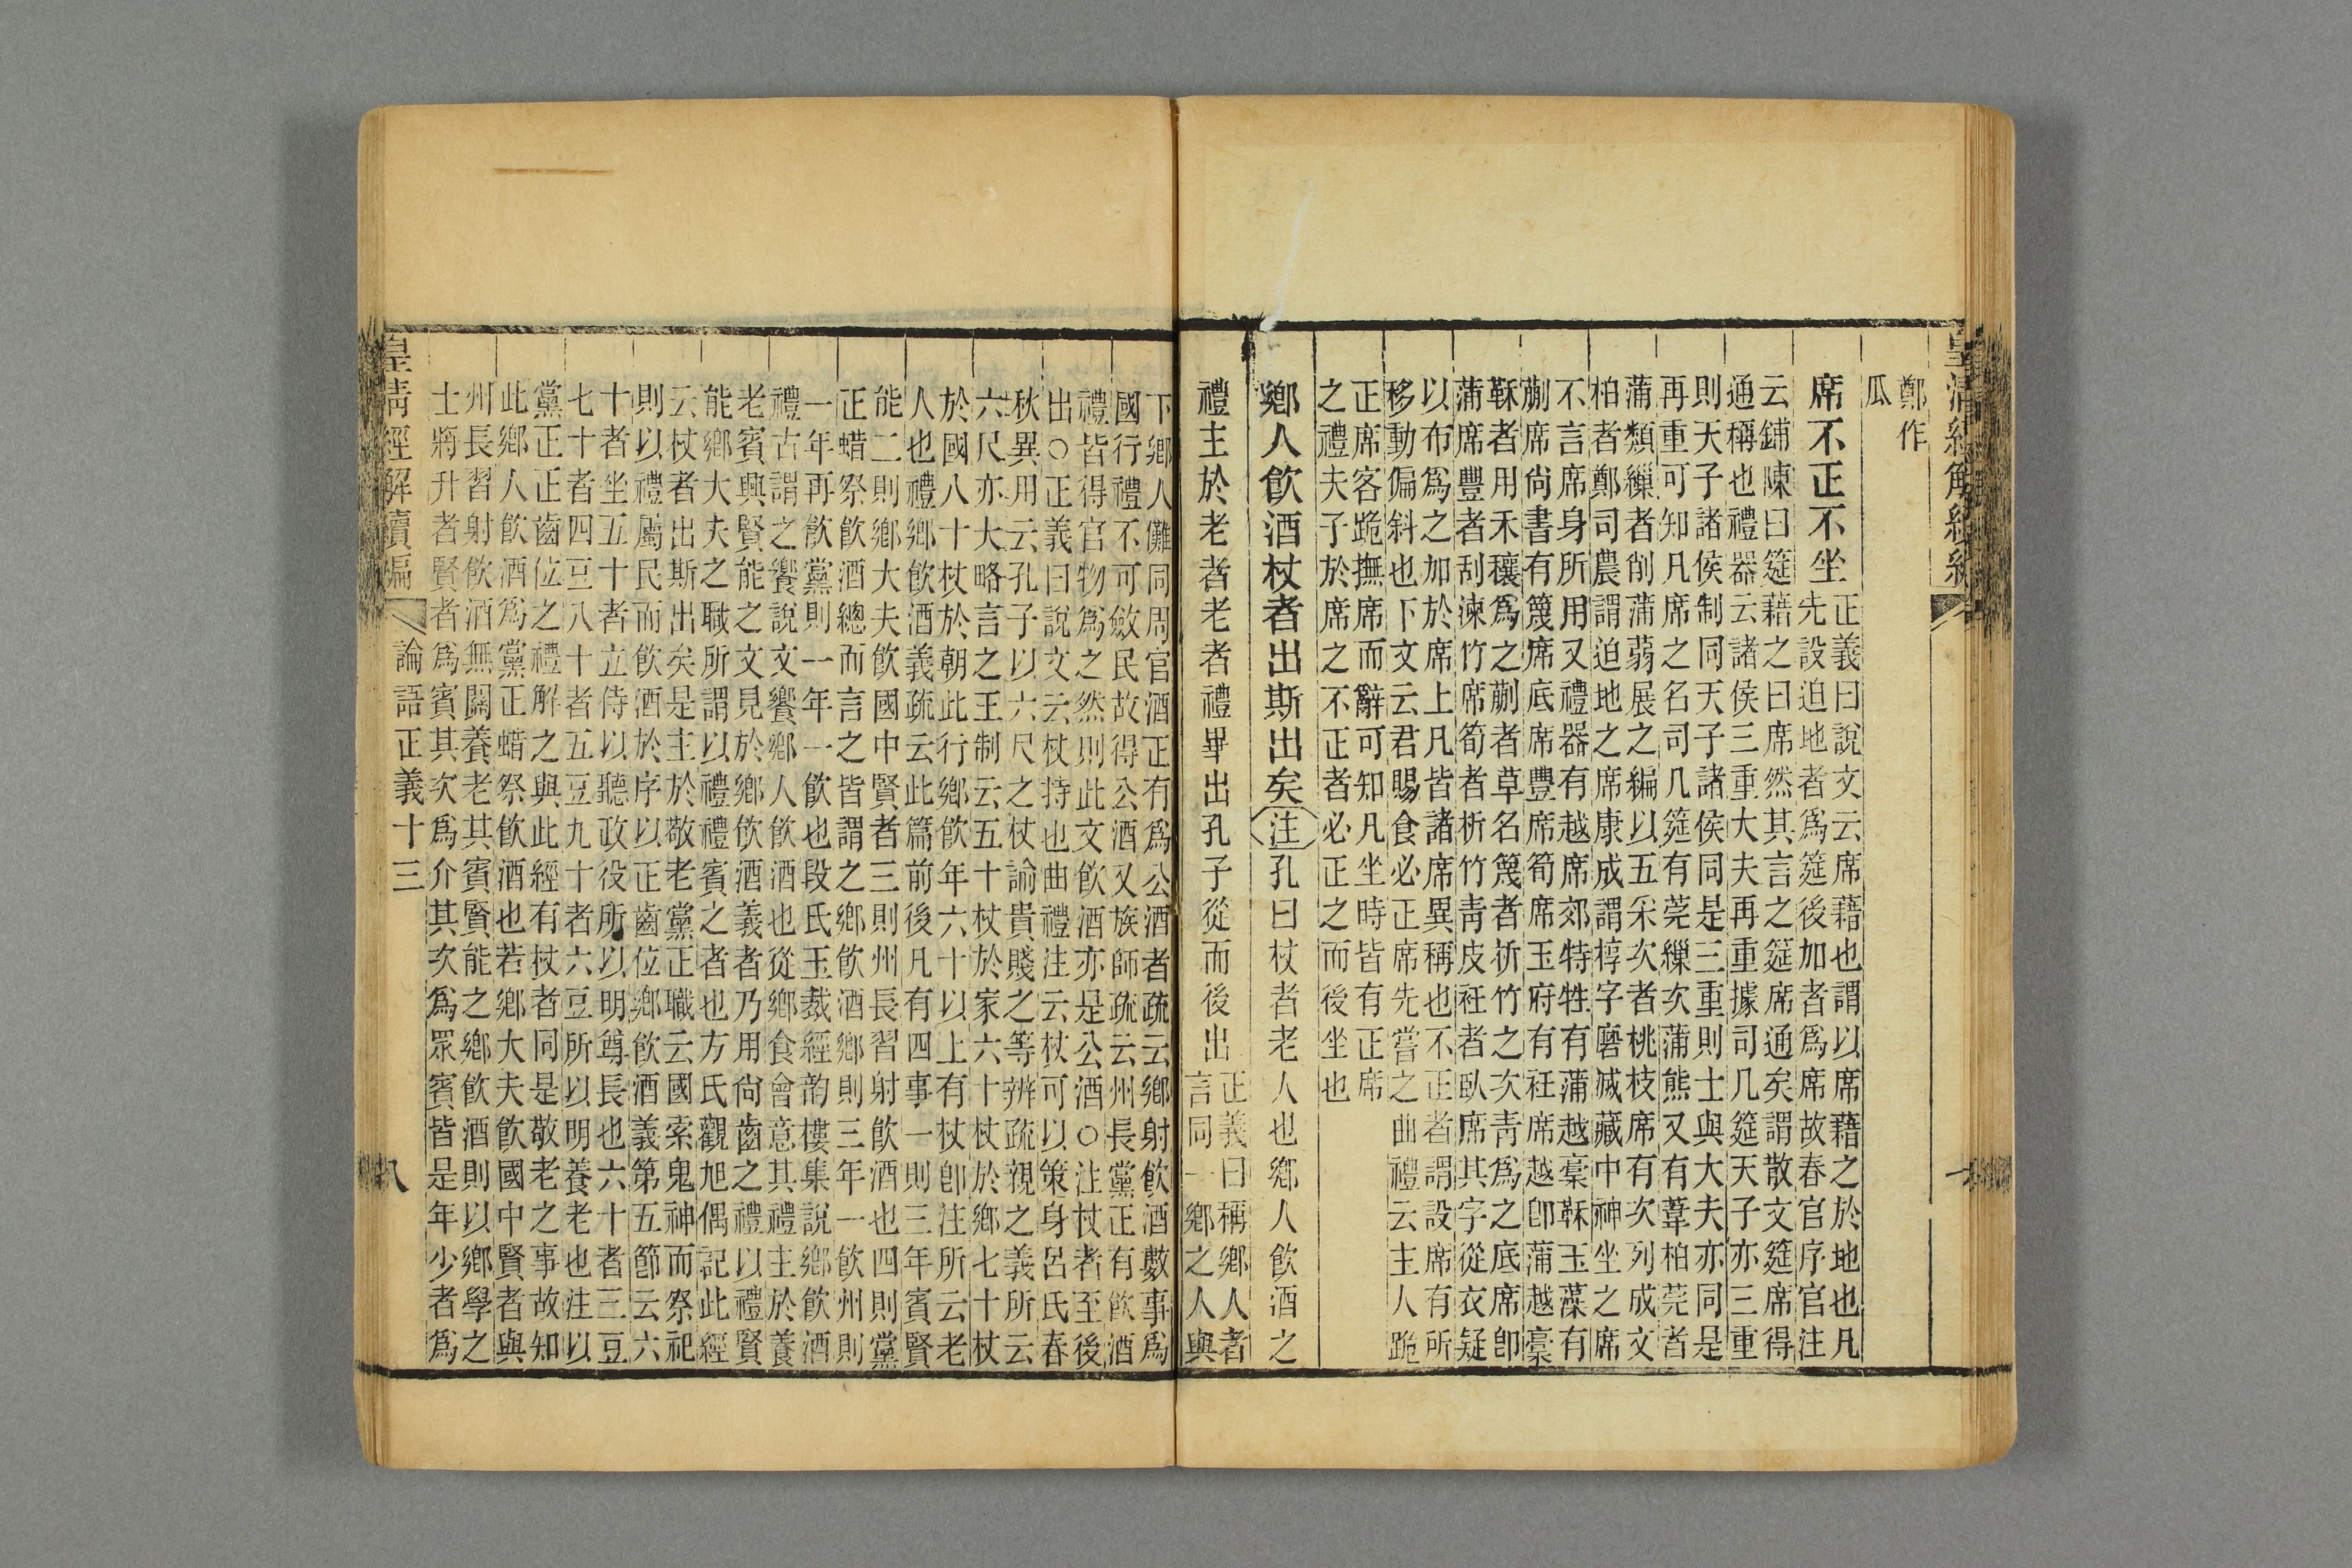 鄭作
瓜
席不正不坐
正義曰說文云席藉也謂以席藉之於地也凡
先設迫地者爲筵後加者爲席故春官序官注
云鋪陳曰筵藉之曰席然其言之筵席通矣謂散文筵席得
通稱也禮器云諸侯三重大夫再重據司几筵天子亦三重
則天子諸侯制同天子諸侯同是三重則士與大夫亦同是
再重可知凡席之名司几筵有莞繅次蒲熊又有葦柏莞者
蒲類繅者削蒲蒻展之編以五采次者桃枝席有次列成文
柏者鄭司農謂迫地之席康成謂椁字磨滅藏中神坐之席
不言席身所用又禮器有越席郊特牲有蒲越稾鞂玉藻有
蒯席尚書有篾席底席豐席筍席玉府有衽席越卽蒲越稾
鞂者用禾穰爲之蒯者草名篾者析竹之次靑爲之底席卽
蒲席豐者刮湅竹席筍者析竹靑皮衽者臥席其字從衣疑
以布爲之加於席上凡皆諸席異稱也不正者謂設席有所
移動偏斜也下文云君賜食必正席先嘗之曲禮云主人跪
正席客跪撫席而辭可知凡坐時皆有正席
之禮夫子於席之不正者必正之而後坐也
鄉人飮酒杖者出斯出矣注孔曰杖者老人也鄉人飮酒之
禮主於老者老者禮畢出孔子從而後出
正義曰稱鄉人者
言同一鄉之人與
下鄉人儺同周官酒正有爲公酒者疏云鄉射飮酒敷事爲
國行禮不可斂民故得公酒又族師疏云州長黨正有飮酒
禮皆得官物爲之然則此文飮酒亦是公酒○注杖者至後
出○正義曰說文云杖持也曲禮注云杖可以策身呂氏春
秋異用云孔子以六尺之杖諭貴賤之等辨疏親之義所云
六尺亦大略言之王制云五十杖於家六十杖於鄉七十杖
於國八十杖於朝此行鄉飮年六十以上有杖卽注所云老
人也禮鄉飮酒義疏云此篇前後凡有四事一則三年賓賢
能二則鄉大夫飮國中賢者三則州長習射飮酒也四則黨
正蜡祭飮酒總而言之皆謂之鄉飮酒鄉則三年一飮州則
一年再飮黨則一年一飮也段氏玉裁經韵樓集說鄉飮酒
禮古謂之饗說文饗鄉人飮酒也從鄉食會意其禮主於養
老賓興賢能之文見於鄉飮酒義者乃用尚齒之禮以禮賢
能鄉大夫之職所謂以禮禮賓之者也方氏觀旭偶記此經
云杖者出斯出矣是主於敬老黨正職云國索鬼神而祭祀
則以禮屬民而飮酒於序以正齒位鄉飮酒義第五節云六
十者坐五十者立侍以聽政役所以明尊長也六十者三豆
七十者四豆八十者五豆九十者六豆所以明養老也注以
黨正正齒位之禮解之與此經有杖者同是敬老之事故知
此鄉人飮酒爲黨正蜡祭飮酒也若鄉大夫飮國中賢者與
州長習射飮酒無關養老其賓賢能之鄉飮酒則以鄉學之
士將升者賢者爲賓其次爲介其次爲眾賓皆是年少者爲
皇淸經解續編
論語正義十三
八